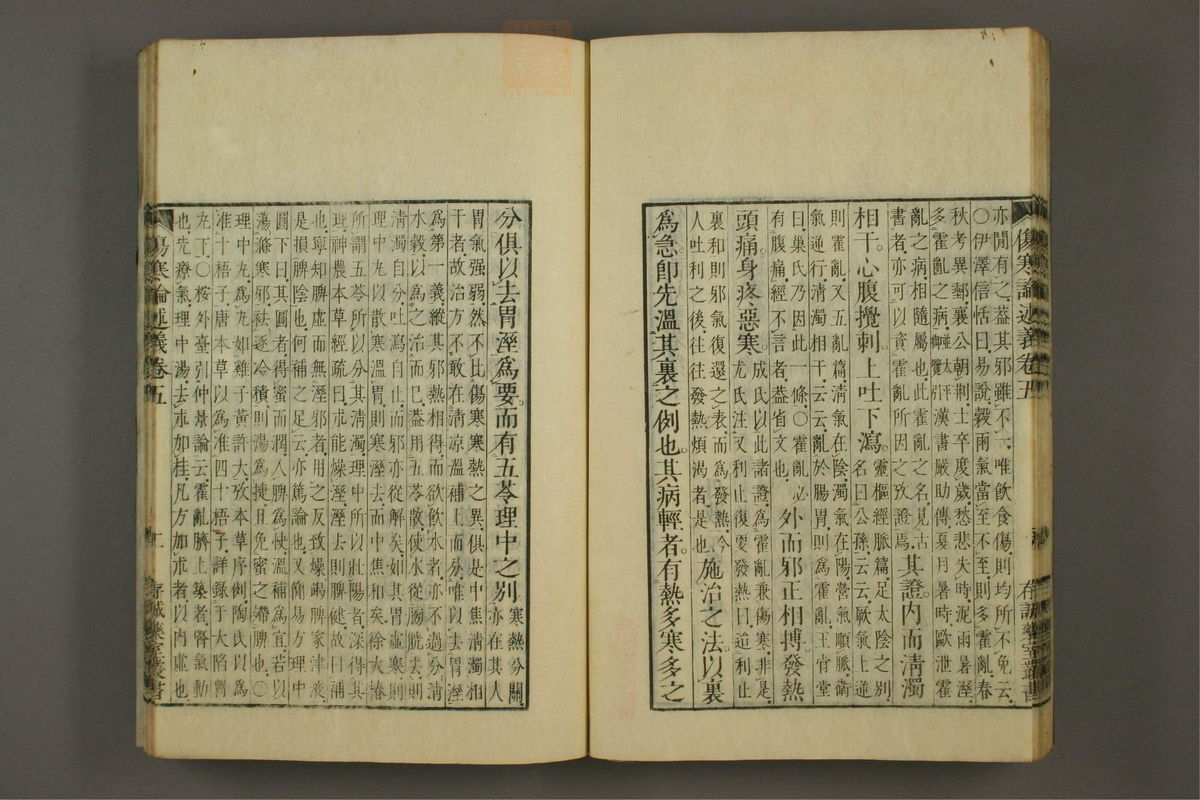 亦閒有之葢其邪雖不一唯飲食傷則均所不免云
〇伊澤信恬曰易說穀雨氣當至不至則多霍亂春
秋考異郵襄公朝荆士卒度歲愁悲失時泥雨暑溼
多霍亂之病御覽太平漢書嚴助傳夏月暑時歐泄霍
亂之病相隨屬也此霍亂之名見古
書者亦可以資霍亂所因之攷證焉其證內而淸濁
相干心腹攪刺上吐下瀉靈樞經脈篇足太陰之別
名曰公孫云云厥氣上逆
則霍亂又五亂篇淸氣在陰濁氣在陽營氣順脈衛
氣逆行淸濁相干云云亂於腸胃則爲霍亂王肯堂
曰巢氏乃因此一條〇霍亂必
有腹痛經不言者葢省文也外而邪正相搏發熱
頭痛身疼惡寒成氏以此諸證爲霍亂兼傷寒非是
尤氏注又利止復更發熱曰逆利止
裏和則邪氣復還之表而爲發熱今
人吐利之後往往發熱煩渴者是也施治之法以裏
爲急卽先溫其裏之例也其病輕者有熱多寒多之
傷寒論述義卷五
存誠藥室叢書
分俱以去胃溼爲要而有五苓理中之別寒熱分關
亦在其人
胃氣强弱然不比傷寒寒熱之異俱是中焦淸濁相
干者故治方不敢在淸涼溫補上而分唯以去胃溼
爲第一義縱其邪熱相得而欲飮水者亦不過分淸
水穀以爲之治而已葢用五苓散使水從膀胱去則
淸濁自分吐瀉自止而邪亦從解矣如其胃虛寒則
理中丸以散寒溫胃則寒溼去而中焦和矣徐大椿
所謂五苓所以分其淸濁理中所以壯陽者深得其
理神農本草經疏曰朮能燥溼溼去則脾健故曰補
也寧知脾虛而無溼邪者用之反致燥竭脾家津液
是損脾陰也何補之足云亦篤論也又簡易方理中
圓下曰其圓者得蜜而潤入脾爲快溫補爲宜若以
蕩滌寒邪祛逐冷積則湯爲捷且免蜜之滯脾也〇
理中丸爲丸如雞子黃許大攷本草序例陶氏以爲
准十梧子唐本草以爲准四十梧子詳錄于大陷胷
丸下〇桉外臺引仲景論云霍亂臍上築者腎氣動
也先療氣理中湯去朮加桂凡方加朮者以內虛也
傷寒論述義卷五
二
存誠藥室叢書